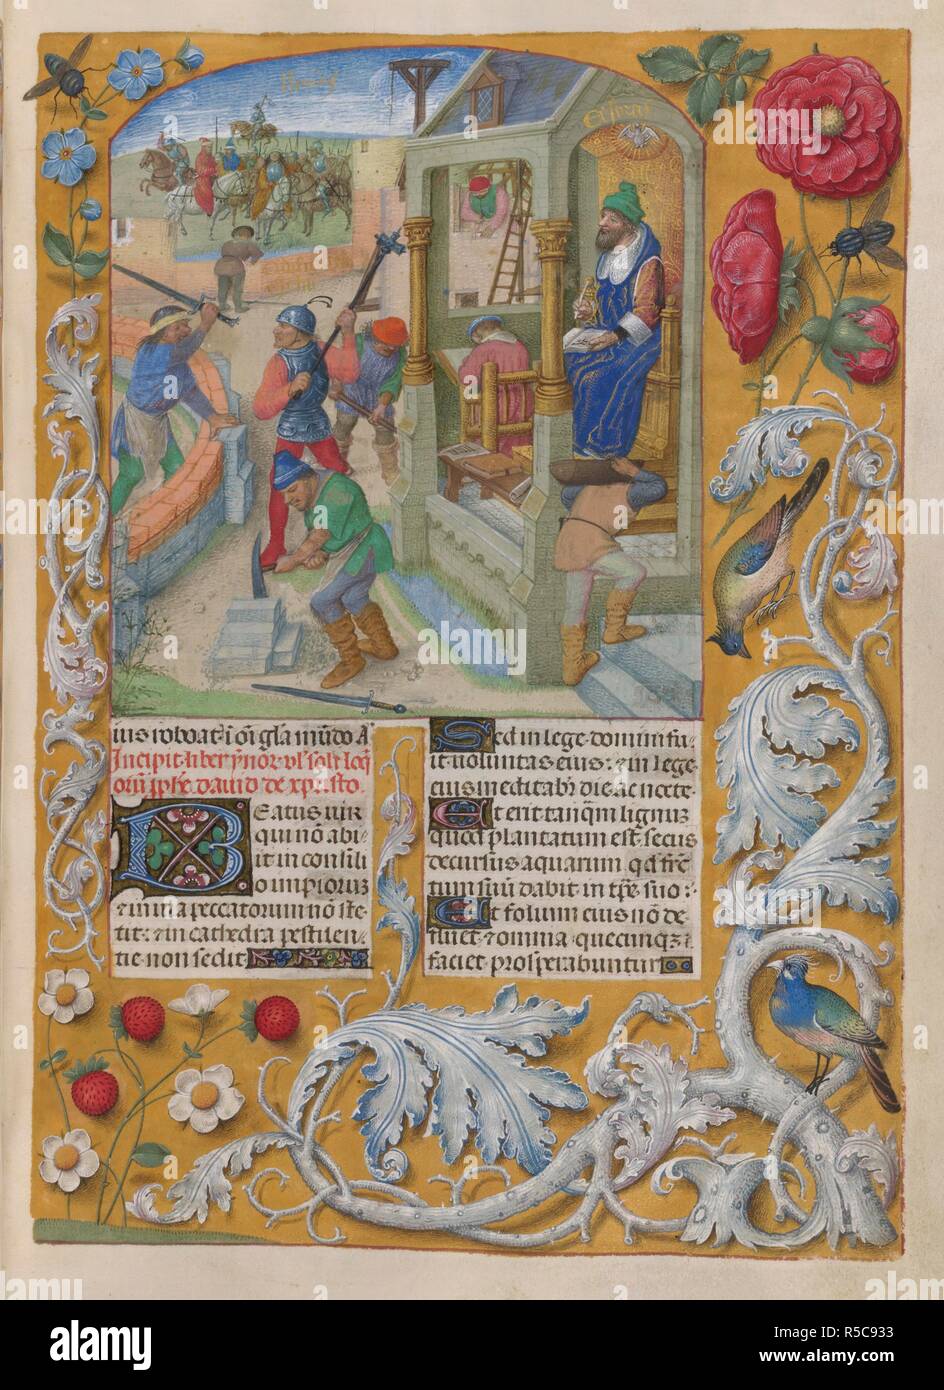 Esdras
ius roboat i oi gla mudo A
Incipit liber ymnor vl soliloq
orum pphe dauid de xpristo
BEATUS uir
qui nō abi
iit in consili
o impiorum
& in uia peccatorum nō ste
tit: & in cathedra pestilen
tie non sedit
Sed in lege domini fu
it uoluntas eius: & in lege
eius meditabr die ac nocte
Et erit tanqm lignum
quod plantatum est secus
decursus aquarum qd fruc
tum suum dabit in tpre suo:
Et folium eius nō de
fluet & omnia quecunqz
faciet prosperabuntur
alamy
Image ID: R5C933
www.alamy.com